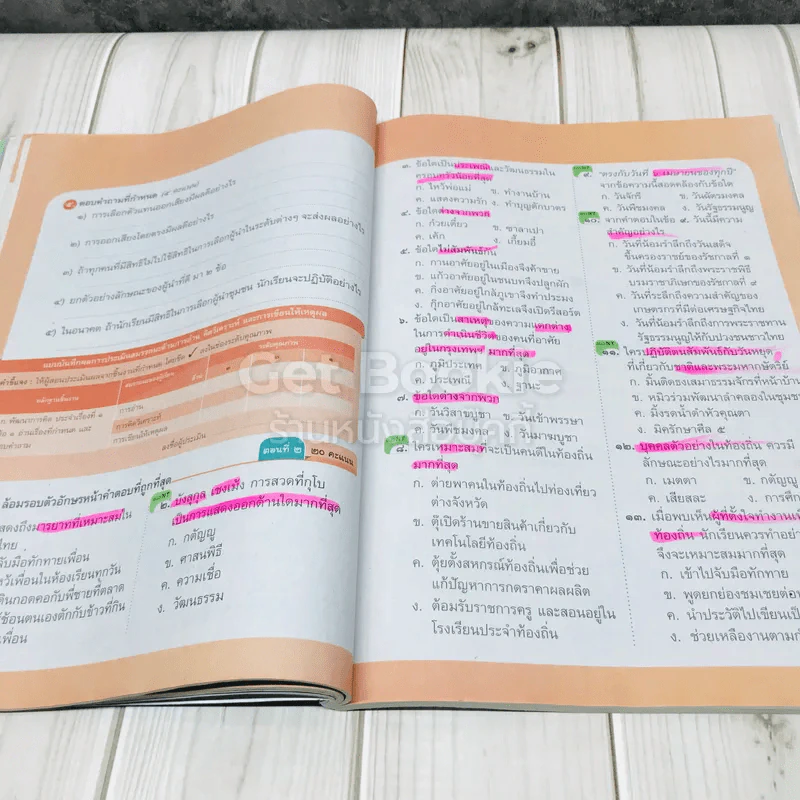 ๔ ตอบคำถามที่กำหนด
๑) การเลือกตัวแทนออกเสียงมีผลดีอย่างไร
๒) การออกเสียงโดยตรงมีผลดีอย่างไร
๓) ถ้าทุกคนที่มีสิทธิไม่ไปใช้สิทธิในการเลือกผู้นำในระดับต่างๆ จะส่งผลอย่างไร
๔) ยกตัวอย่างลักษณะของผู้นำที่ดี มา ๒ ข้อ
๕) ในอนาคต ถ้านักเรียนมีสิทธิในการเลือกผู้นำชุมชน นักเรียนจะปฏิบัติอย่างไร
การอ่าน
การคิดวิเคราะห์
การเขียนให้เหตุผล
ลงชื่อผู้ประเมิน
ตอนที่ ๒ ๒๐ คะแนน
ล้อมรอบตัวอักษรหน้าคำตอบที่ถูกที่สุด
สดงถึงมารยาทที่เหมาะสมใน
ไทย
จับมือทักทายเพื่อน
หว้เพื่อนในห้องเรียนทุกวัน
ดินกอดคอกับพี่ชายที่ตลาด
ช้ช้อนตนเองตักกับข้าวที่กิน
เพื่อน
๒. บังสุกุล เชงเม้ง การสวดที่กุโบ
เป็นการแสดงออกด้านใดมากที่สุด
ก. กตัญญู
ข. ศาสนพิธี
ค. ความเชื่อ
ง. วัฒนธรรม
๓. ข้อใดเป็นประเพณีและวัฒนธรรมใน
ครอบครัวน้อยที่สุด
ก. ไหว้พ่อแม่ ข. ทำงานบ้าน
ค. แสดงความรัก ง. ทำบุญตักบาตร
๔. ข้อใดต่างจากพวก
ก. ก๋วยเตี๋ยว ข. ซาลาเปา
ค. เค้ก ง. เกี้ยมอี๋
๕. ข้อใดไม่สัมพันธ์กัน
ก. กานอาศัยอยู่ในเมืองจึงค้าขาย
ข. แก้วอาศัยอยู่ในชนบทจึงปลูกผัก
ค. กิ่งอาศัยอยู่ใกล้ภูเขาจึงทำประมง
ง. กุ๊กอาศัยอยู่ใกล้ทะเลจึงเปิดรีสอร์ต
๖. ข้อใดเป็นสาเหตุของความแตกต่าง
ในการดำเนินชีวิตของคนที่อาศัย
อยู่ในกรุงเทพฯ มากที่สุด
ก. ภูมิประเทศ ข. ภูมิอากาศ
ค. ประเพณี ง. ฐานะ
๗. ข้อใดต่างจากพวก
ก. วันวิสาขบูชา ข. วันเข้าพรรษา
ค. วันพืชมงคล ง. วันมาฆบูชา
๘. ใครเหมาะสมที่จะเป็นคนดีในท้องถิ่น
มากที่สุด
ก. ต่ายพาคนในท้องถิ่นไปท่องเที่ยว
ต่างจังหวัด
ข. ตุ๊เปิดร้านขายสินค้าเกี่ยวกับ
เทคโนโลยีท้องถิ่น
ค. ตุ้ยตั้งสหกรณ์ท้องถิ่นเพื่อช่วย
แก้ปัญหาการกดราคาผลผลิต
ง. ต้อมรับราชการครู และสอนอยู่ใน
โรงเรียนประจำท้องถิ่น
๙. "ตรงกับวันที่ ๖ เมษายนของทุกปี"
จากข้อความนี้สอดคล้องกับข้อใด
ก. วันจักรี ข. วันฉัตรมงคล
ค. วันพืชมงคล ง. วันรัฐธรรมนูญ
๑๐. จากคำตอบในข้อ ๙ วันนี้มีความ
สำคัญอย่างไร
ก. วันที่น้อมรำลึกถึงวันเสด็จ
ขึ้นครองราชย์ของรัชกาลที่ ๑
ข. วันที่น้อมรำลึกถึงพระราชพิธี
บรมราชาภิเษกของรัชกาลที่ ๙
ค. วันที่ระลึกถึงความสำคัญของ
เกษตรกรที่มีต่อเศรษฐกิจไทย
ง. วันที่น้อมรำลึกถึงการพระราชทาน
รัฐธรรมนูญให้กับปวงชนชาวไทย
๑๑. ใครปฏิบัติตนสัมพันธ์กับวันหยุด
ที่เกี่ยวกับชาติและพระมหากษัตริย์
ก. มิ้นติดธงเสมาธรรมจักรที่หน้าบ้าน
ข. หมิวร่วมพัฒนาลำคลองในชุมชน
ค. มิ้งรดน้ำดำหัวคุณตา
ง. มิครักษาศีล ๕
๑๒. บุคคลตัวอย่างในท้องถิ่น ควรมี
ลักษณะอย่างไรมากที่สุด
ก. เมตตา ข. กตัญญู
ค. เสียสละ ง. การศึก
๑๓. เมื่อพบเห็นผู้ที่ตั้งใจทำงานเพื่
ท้องถิ่น นักเรียนควรทำอย่าง
จึงจะเหมาะสมมากที่สุด
ก. เข้าไปจับมือทักทาย
ข. พูดยกย่องชมเชยต่อหน้
ค. นำประวัติไปเขียนเป็
ง. ช่วยเหลืองานตามก
Get Bookie
ร้านหนังสือบุ๊คกี้